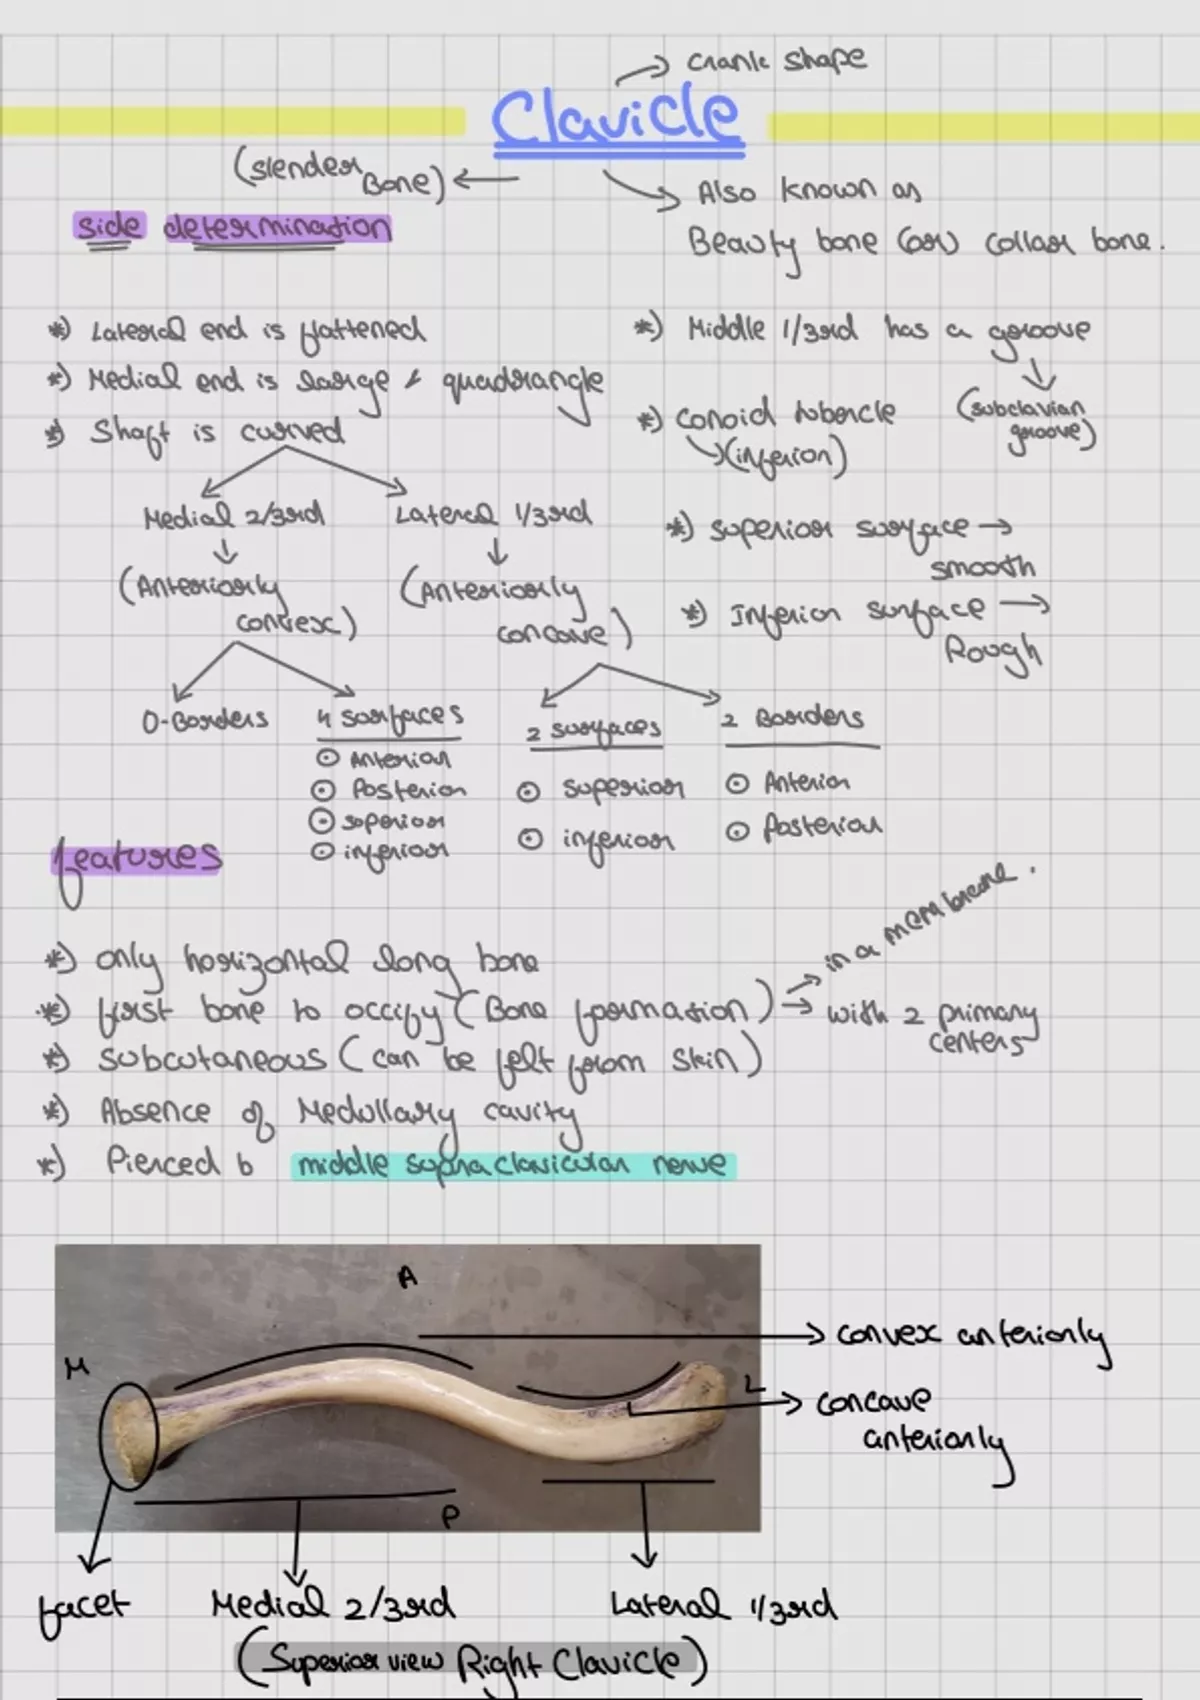 crank shape
Clavicle
(slender Bone)
Also known as
Beauty bone (or) collar bone.
side determination
*) Lateral end is flattened
*) Medial end is large & quadrangle
*) Shaft is curved
Medial 2/3rd
Lateral 1/3rd
(Anteriorly
convex)
(Anteriorly
concave)
0-Borders
4 surfaces
Anterior
Posterior
superior
inferior
2 surfaces
superior
inferior
2 Borders
Anterior
Posterior
*) Middle 1/3rd has a groove
(subclavian
groove)
*) conoid tubercle
(inferior)
*) superior surface →
smooth
*) Inferior surface →
Rough
features
*) only horizontal long bone
*) first bone to occify (Bone formation)
in a membrane.
with 2 primary
centers
*) subcutaneous (can be felt from skin)
*) Absence of Medullary cavity
*) Pierced b middle supraclavicular nerve
A
M
L
P
convex anteriorly
concave
anteriorly
facet
Medial 2/3rd
Lateral 1/3rd
(Superior view Right Clavicle)